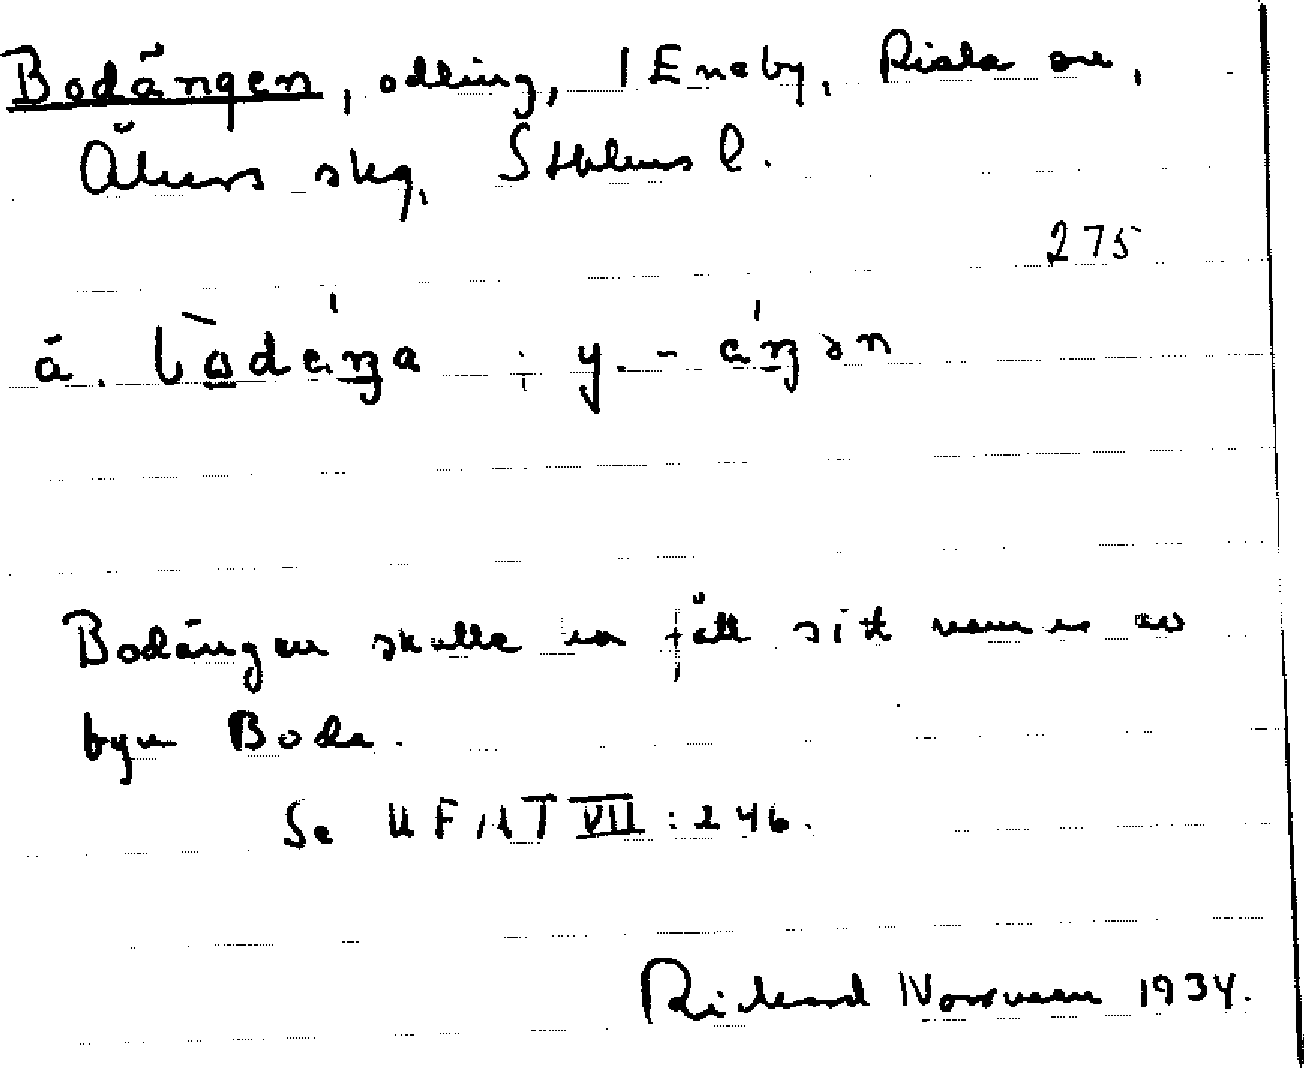 Bodängen, odling, 1 Eneby, Riala sn,
Åkers skg, Sthlms l.
275
ä. bòdeŋa ÷ y. - éŋən
Bodängen skulle ha fått sitt namn av
byn Boda.
Se UFMT VII : 246.
Rickard Norrman 1934.